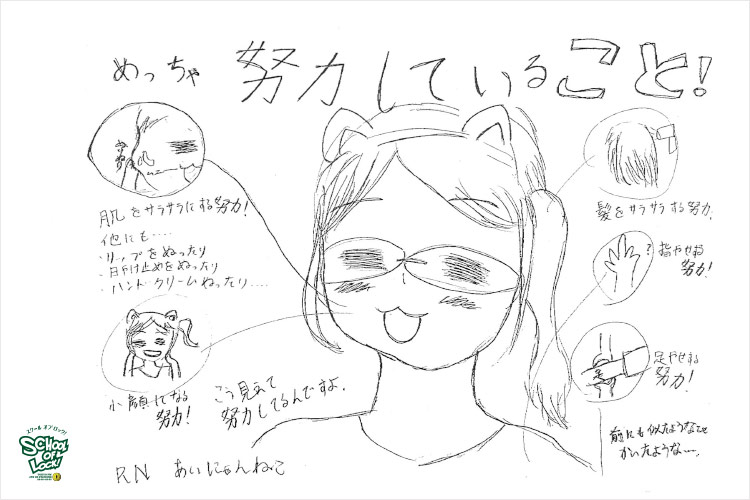 めっちゃ 努力していること!
肌をサラサラにする努力!
他にも‥‥
・リップをぬったり
・日やけ止めをぬったり
・ハンドクリームぬったり‥‥
髪をサラサラする努力。
指やせする
努力!
足やせする
努力!
小顔になる
努力!
こう見えて
努力してるんですよ。
前にも似たようなこと
かいたような‥‥。
RN あいにゃんねこ
スクール オブ ロック!
SCHOOL
OF
LOCK!